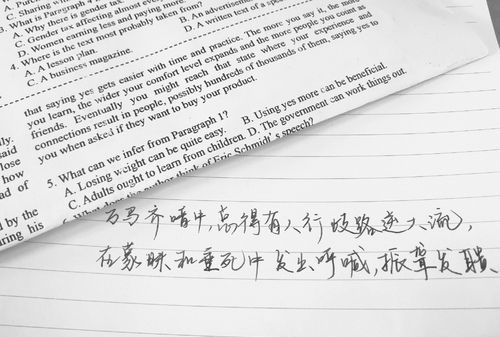 A. Pur
C. Sharing w
3. What is Paragraph 4
A. Why there is gender tax
C. Gender tax affecting almost ever
D. Women earning less and paying mo
4. Where is the text most probably taken from?
A. A lesson plan.
B. An advertisemen
C. A business magazine.
D. A written text of a spe
that saying yes gets easier with time and practice. The more you say it, the more
you learn, the wider your comfort level expands and the more people you count as
friends. Eventually you might reach that state where your experience and
connections result in people, possibly hundreds of thousands of them, saying yes to
you when asked if they want to buy your product.
ly.
said
lose
how
ad of
d by the
uring his
5. What can we infer from Paragraph 1?
A. Losing weight can be quite easy. B. Using yes more can be beneficial.
C. Adults ought to learn from children. D. The government can work things out.
think of Eric Schmidt's speech?
万马齐喑中,总得有人行歧路逆人流,
在蒙昧和垂死中发出呼喊,振聋发聩